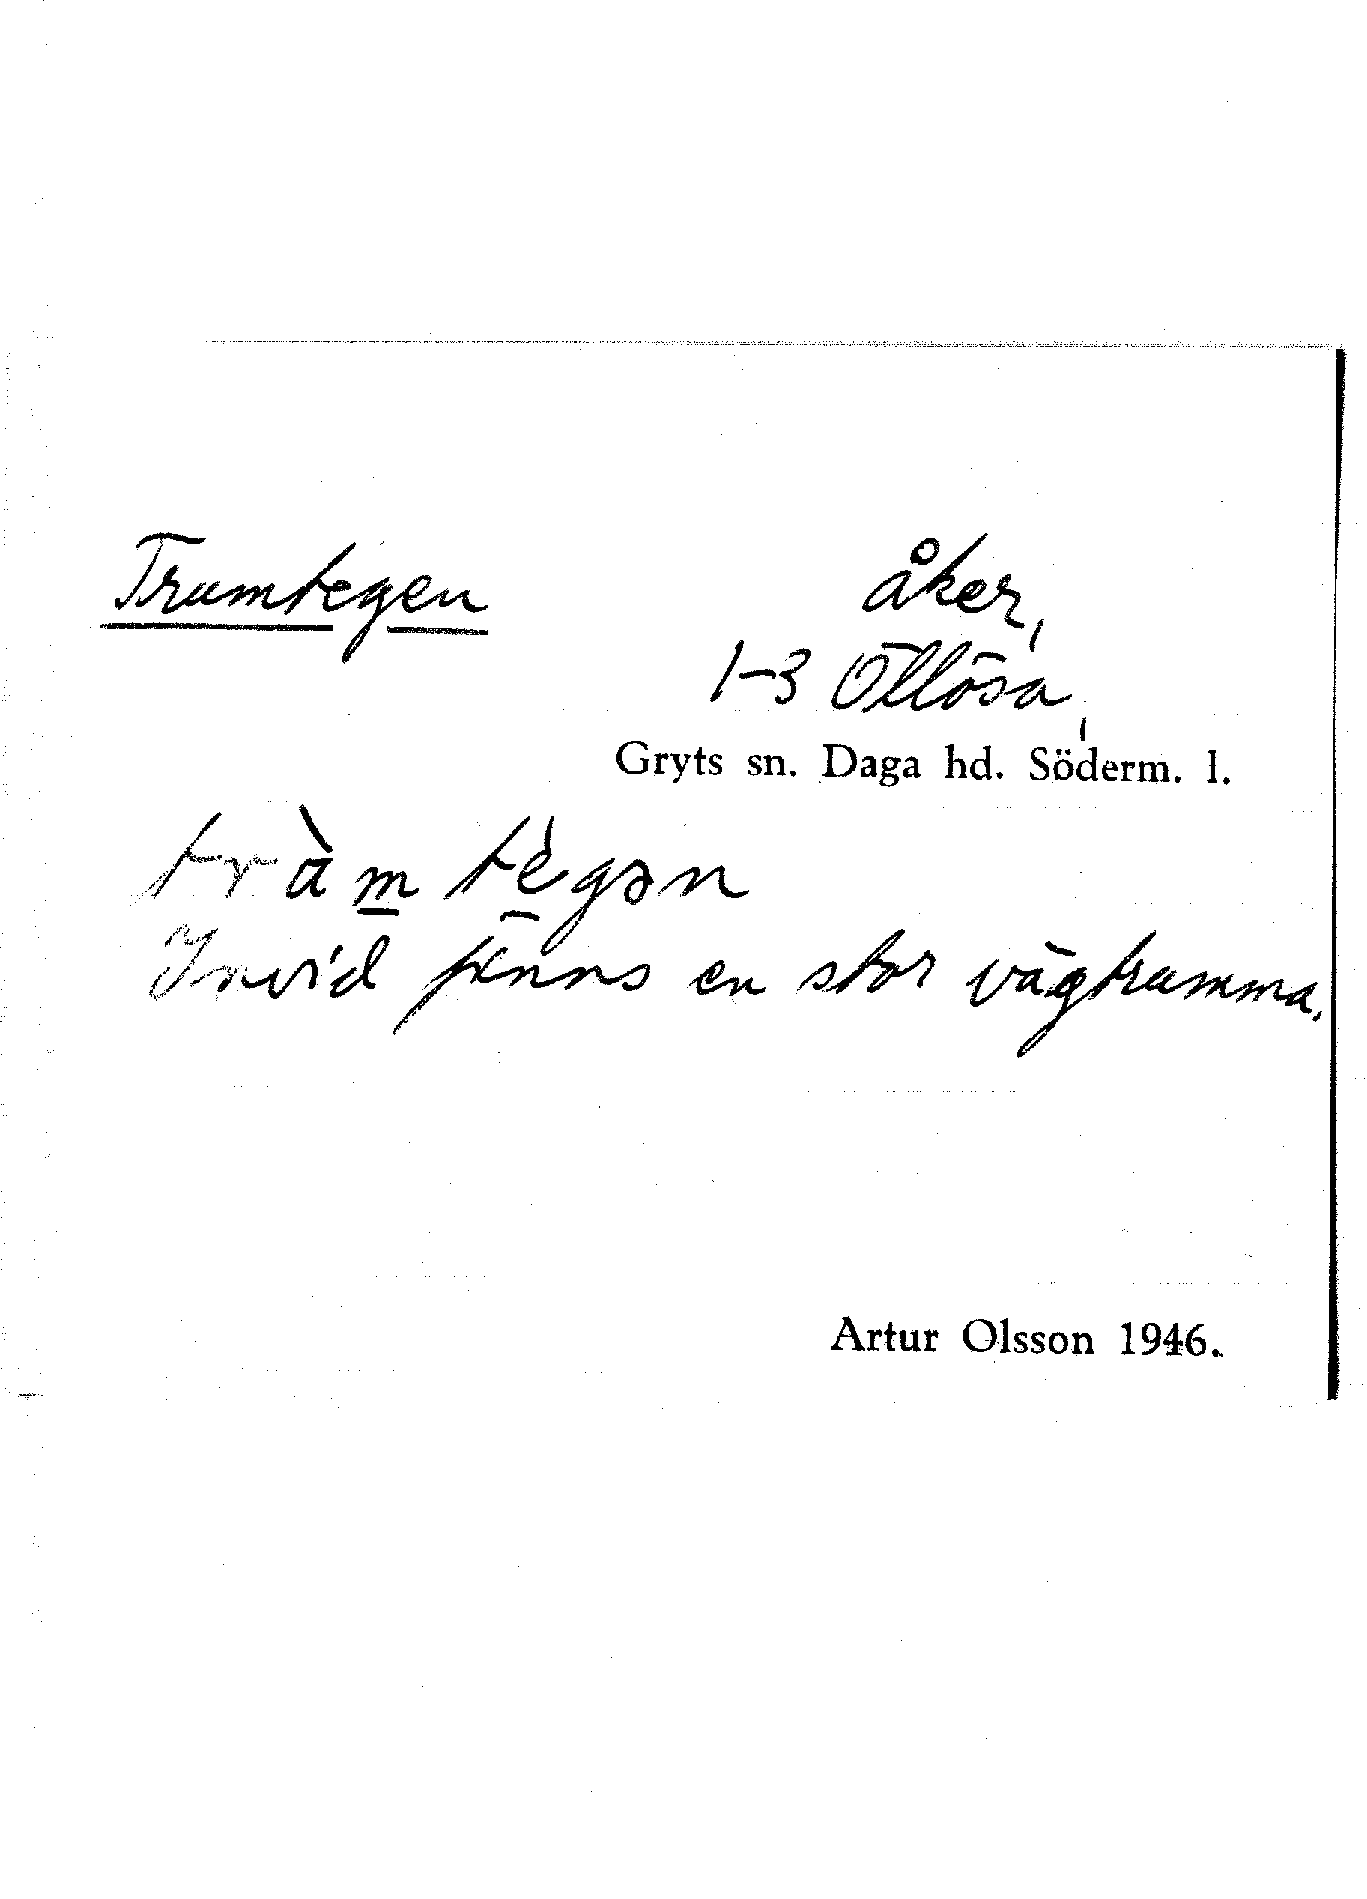 Trumtegen
åker,
1-3 Öllösa,
Gryts sn. Daga hd. Söderm. l.
Invid finns en stor vägtrumma.
Artur Olsson 1946.